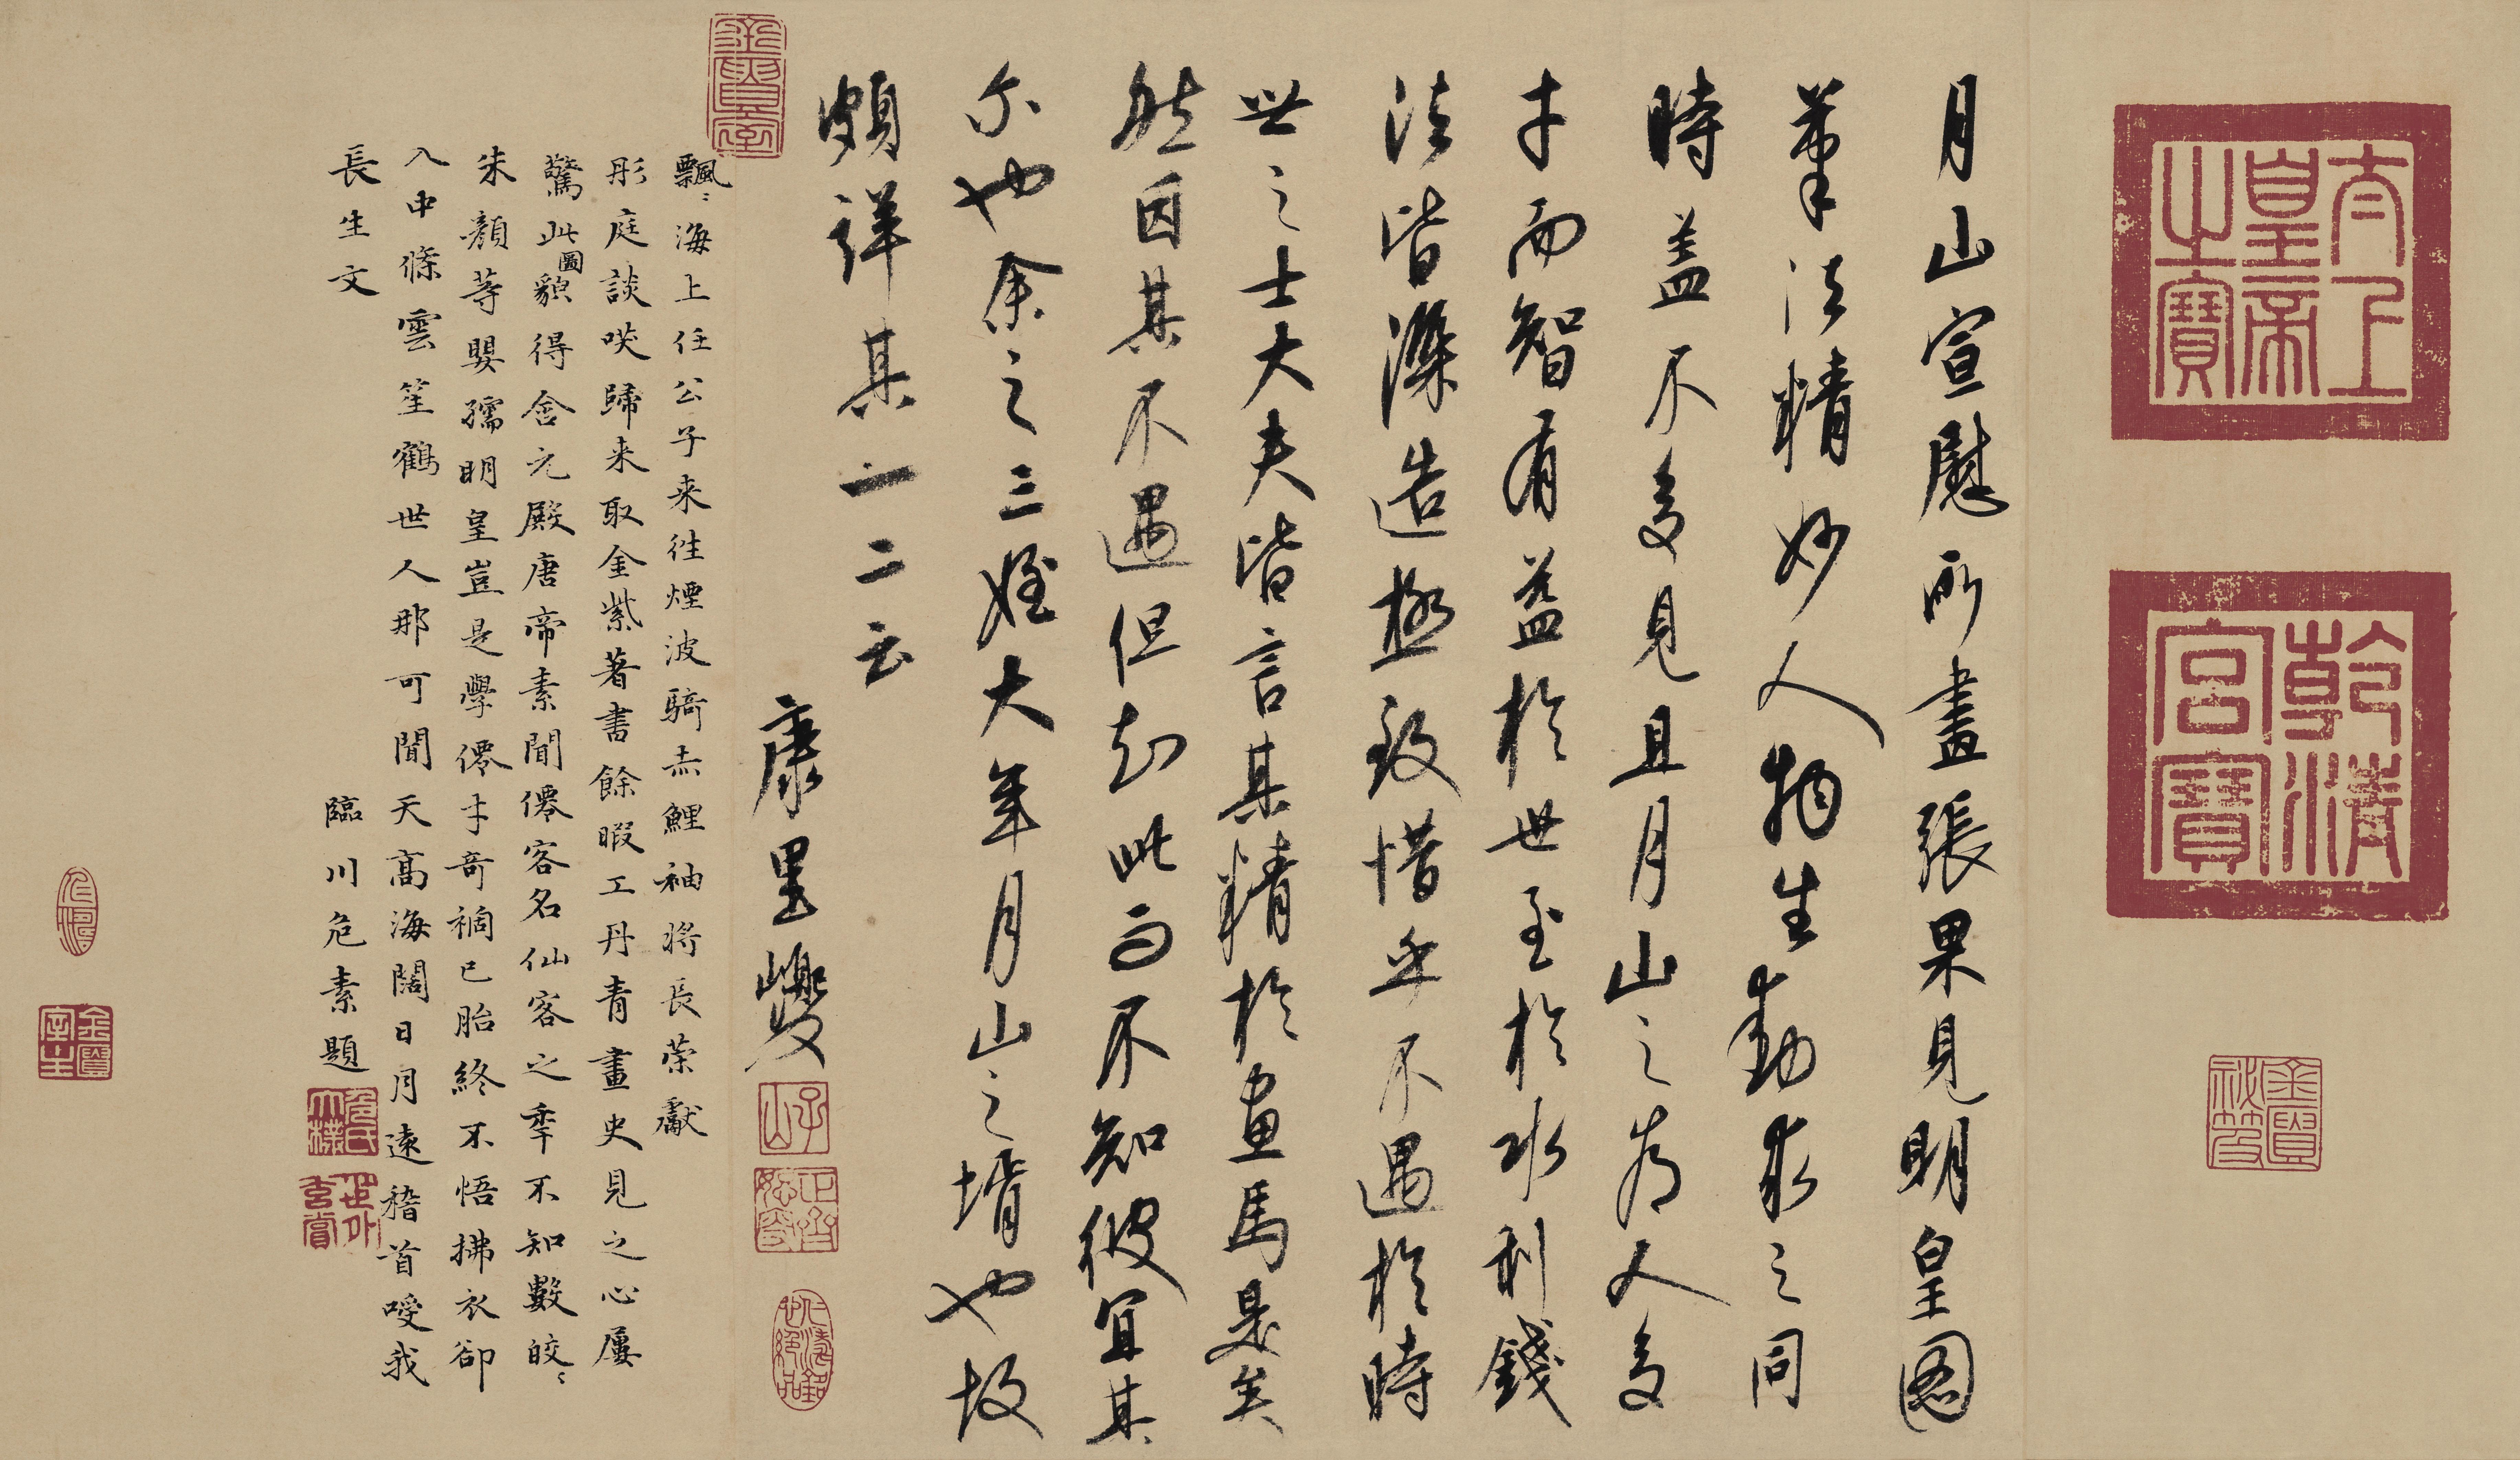 太上皇帝之寶
乾清宮寶
月山宣慰所畫張果見明皇圖
筆法精妙人物生動求之同
時蓋不多見且月山之為人多
才而智有益於世至於水利錢
法皆深造極致惜乎不遇於時
世之士大夫皆言其精於畫馬是矣
然因其不遇但知此而不知彼宜其
尔也余之三姪大年月山之壻也故
頗詳其一二云
康里巎
子山
飄〻海上任公子来往煙波騎赤鯉袖將長榮獻
彤庭談咲歸来取金紫著書餘暇工丹青畫史見之心屢
驚此圖貌得含元殿唐帝素聞僊客名仙客之季不知數皎〻
朱顏等嬰孺明皇豈是學僊才奇禍已胎終不悟拂衣卻
入中條雲笙鶴世人那可聞天高海闊日月遠稽首嗳我
長生文
臨川危素題
危氏太樸